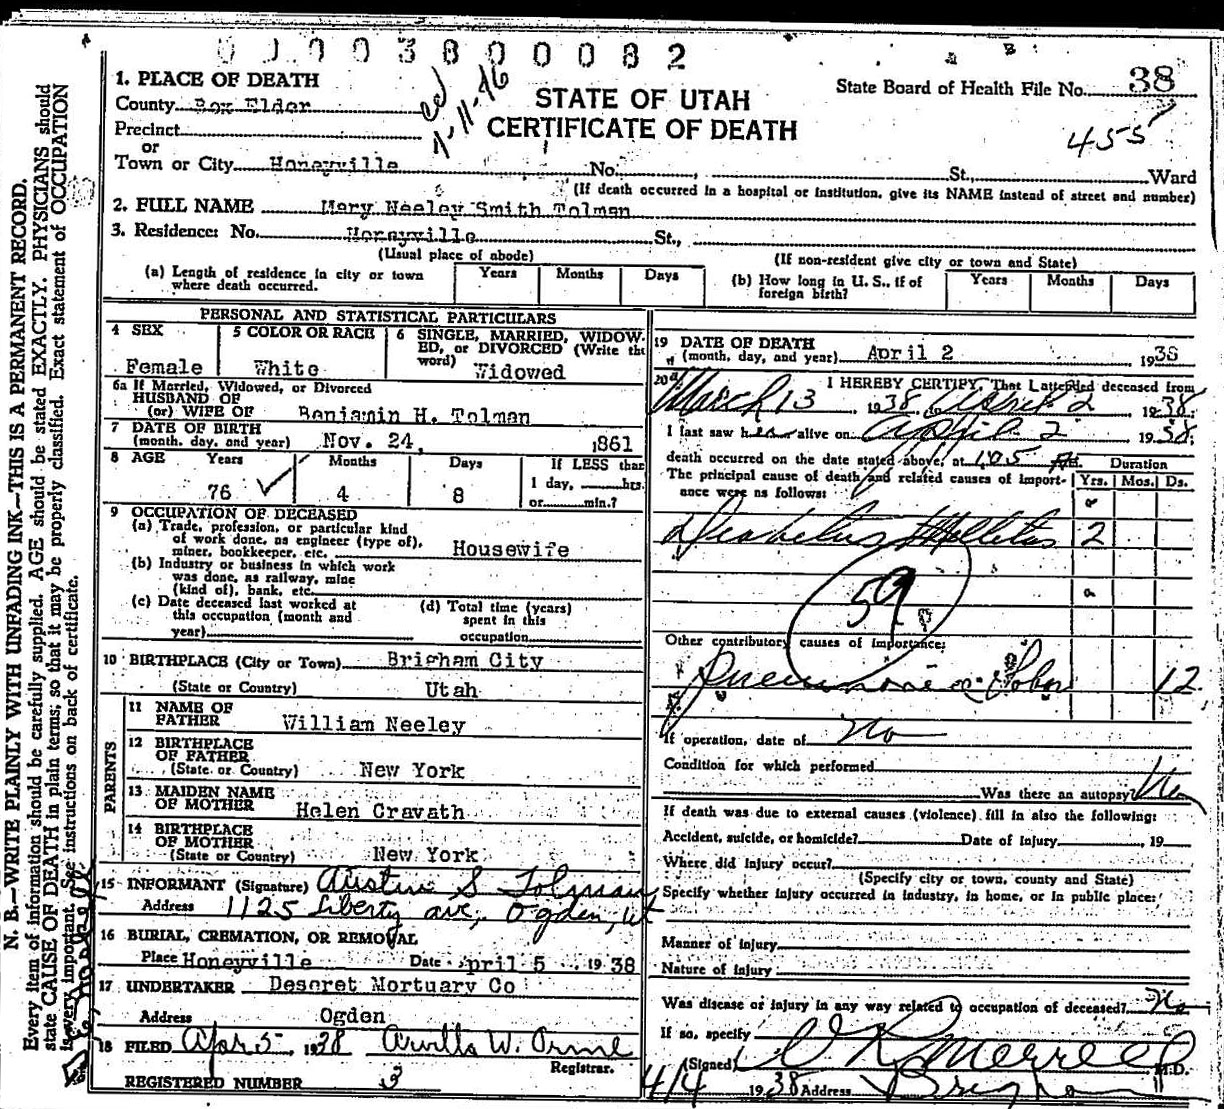 0000380082
1. PLACE OF DEATH
County Box Elder
Precinct
or
Town or City Honeyville No. St., Ward
4-11-76
STATE OF UTAH
CERTIFICATE OF DEATH
State Board of Health File No. 38
455
(If death occurred in a hospital or institution, give its NAME instead of street and number)
2. FULL NAME Mary Neeley Smith Tolman
3. Residence: No. Honeyville St.,
(Usual place of abode) (If non-resident give city or town and State)
(a) Length of residence in city or town where death occurred. Years Months Days
(b) How long in U. S., if of foreign birth? Years Months Days
PERSONAL AND STATISTICAL PARTICULARS
4 SEX Female
5 COLOR OR RACE White
6 SINGLE, MARRIED, WIDOWED, or DIVORCED (Write the word) Widowed
6a If Married, Widowed, or Divorced
HUSBAND OF
(or) WIFE OF Benjamin H. Tolman
7 DATE OF BIRTH
(month, day, and year) Nov. 24, 1861
8 AGE Years Months Days If LESS than
76 4 8 1 day, hrs.
or min.?
9 OCCUPATION OF DECEASED
(a) Trade, profession, or particular kind
of work done, as engineer (type of),
miner, bookkeeper, etc. Housewife
(b) Industry or business in which work
was done, as railway, mine
(kind of), bank, etc.
(c) Date deceased last worked at
this occupation (month and
year)
(d) Total time (years)
spent in this
occupation
10 BIRTHPLACE (City or Town) Brigham City
(State or Country) Utah
PARENTS
11 NAME OF
FATHER William Neeley
12 BIRTHPLACE
OF FATHER
(State or Country) New York
13 MAIDEN NAME
OF MOTHER Helen Cravath
14 BIRTHPLACE
OF MOTHER
(State or Country) New York
15 INFORMANT (Signature) Austin S Tolman
Address 1125 Liberty ave, Ogden, Ut
16 BURIAL, CREMATION, OR REMOVAL
Place Honeyville Date April 5 1938
17 UNDERTAKER Deseret Mortuary Co
Address Ogden
18 FILED Apr 5 1938 Arvilla W. Orme
Registrar.
REGISTERED NUMBER 3
19 DATE OF DEATH
(month, day, and year) April 2 1938
20 I HEREBY CERTIFY, That I attended deceased from
March 13, 1938, to April 2 1938
I last saw her alive on April 2 1938;
death occurred on the date stated above, at 1.05 Duration
The principal cause of death and related causes of importance were as follows: Yrs. Mos. Ds.
Diabetus Mellitus 2
59
Other contributory causes of importance:
Pneumonia Lobar 12
If operation, date of No
Condition for which performed
Was there an autopsy No
If death was due to external causes (violence) fill in also the following:
Accident, suicide, or homicide? Date of injury , 19
Where did injury occur?
(Specify city or town, county and State)
Specify whether injury occurred in industry, in home, or in public place:
Manner of injury
Nature of injury
Was disease or injury in any way related to occupation of deceased? No
If so, specify
(Signed) Merrell M.D.
4/4 1938 Address Brigham
N. B.—WRITE PLAINLY WITH UNFADING INK—THIS IS A PERMANENT RECORD.
Every item of information should be carefully supplied. AGE should be stated EXACTLY. PHYSICIANS should
state CAUSE OF DEATH in plain terms, so that it may be properly classified. Exact statement of OCCUPATION
is very important. See instructions on back of certificate.